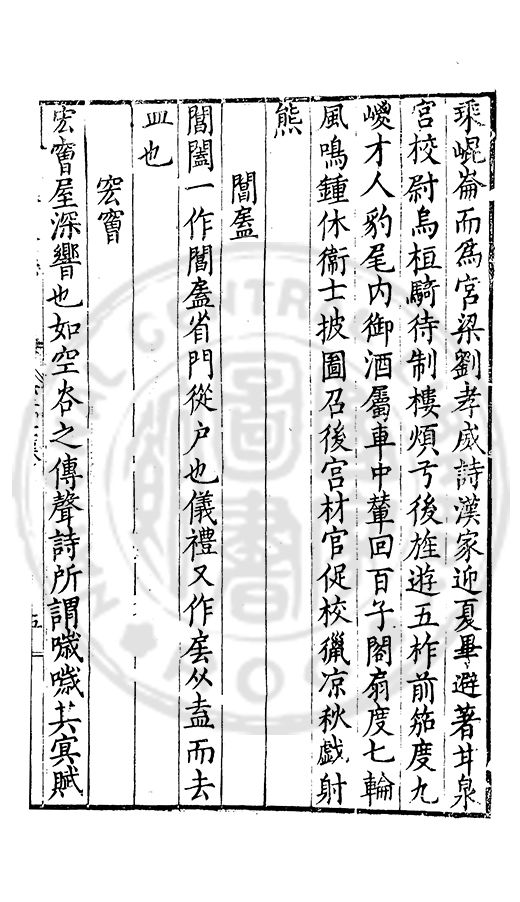 乘崐崙而爲宫梁劉孝威詩漢家迎夏畢避著甘泉
宫校尉烏桓騎待制樓煩弓後旌遊五柞前笳度九
嵕才人豹尾内御酒屬車中輦回百子閣扇度七輪
風鳴鍾休衞士披圖召後宫材官促校獵凉秋戲射
熊
閶盍
閶闔一作閶盍省門從户也儀禮又作㕎从盍而去
皿也
宏窨
宏窨屋深響也如空谷之傳聲詩所謂噦噦其㝠賦